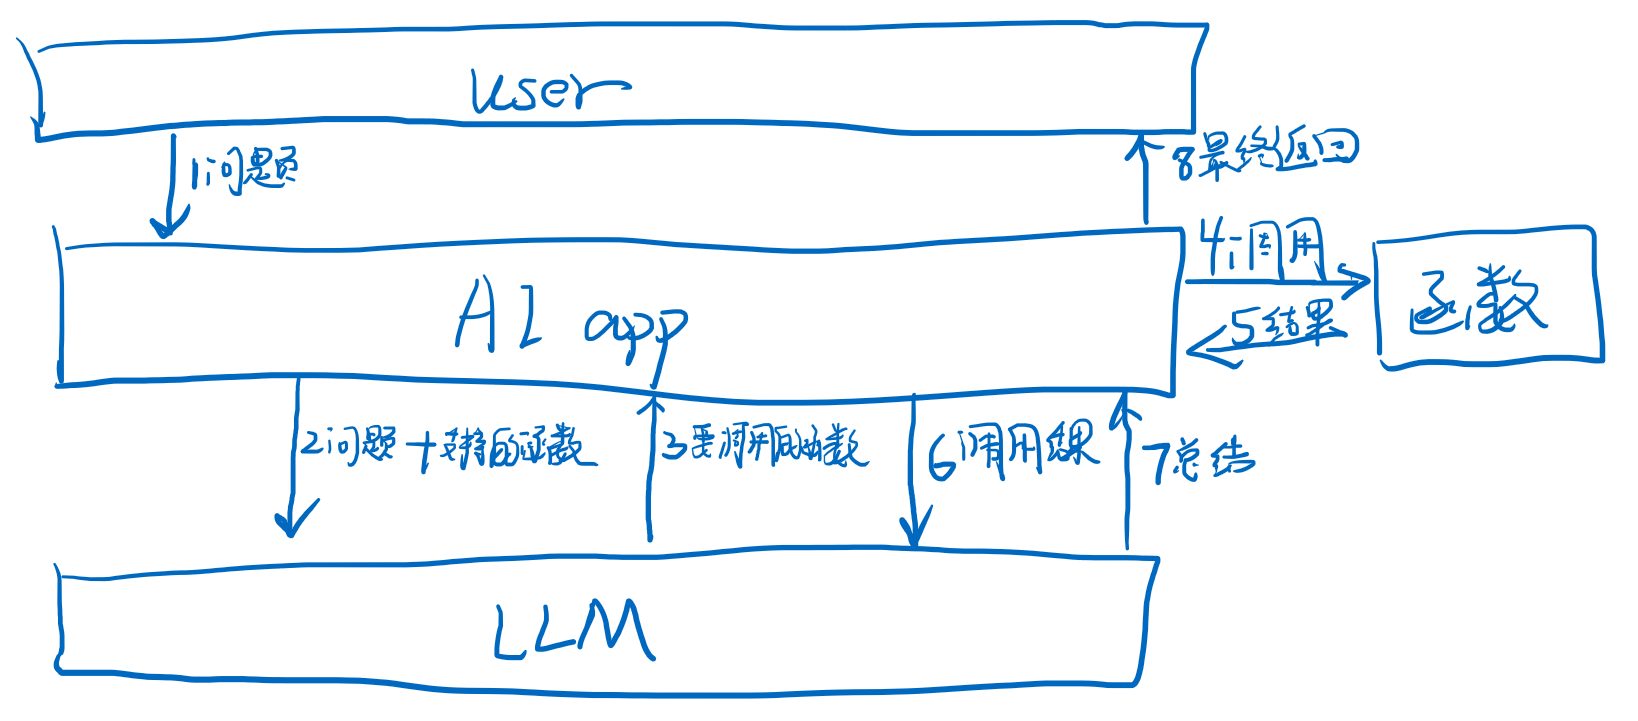 user
1问题
8最终返回
AI app
4调用
5结果
函数
2问题 + 支持的函数
3要调用的函数
6调用结果
7总结
LLM